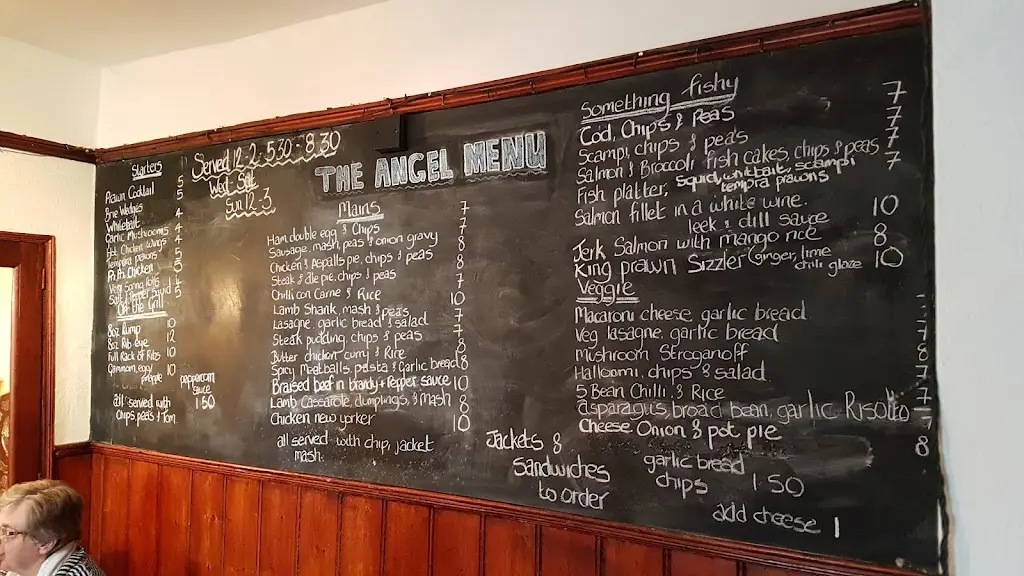 Starters
Prawn Cocktail 5
Brie Wedges 5
Whitebait
Garlic Mushrooms 4
Hot Chicken Wings 4
Tempra prawns 5
Piri Piri Chicken 5
Veg Spring Rolls
Salt & Pepper Squid 5
Off the Grill
8oz Rump 10
8oz Rib eye 12
Full Rack of Ribs 10
Gammon, egg 10
all served with
chips peas & Tom
peppercorn
sauce
1.50
Served 12-2. 5.30 - 8.30
Wed. Sat
Sun 12-3
THE ANGEL MENU
Mains
Ham, double egg & Chips 7
Sausage, mash, peas & onion gravy 7
Chicken & Aspalls pie, chips & peas 8
Steak & ale pie, chips & peas 8
Chilli con Carne & Rice 7
Lamb Shank, mash & peas 10
Lasagne, garlic bread & salad 7
Steak pudding, chips & peas 7
Butter chicken curry & Rice 8
Spicy Meatballs, pasta & Garlic bread 8
Braised beef in brandy & Pepper sauce 10
Lamb Casserole, dumplings, & mash 8
Chicken new yorker 8
10
all served with chip, jacket
mash.
Jackets &
Sandwiches
to order
Something fishy
Cod, Chips & Peas 7
Scampi, chips & peas 7
Salmon & Broccoli fish cakes, chips & peas 7
Fish platter, squid, whitbait, scampi 7
tempra prawns
Salmon fillet in a white wine. 10
leek & dill sauce
Jerk Salmon with mango rice 8
King prawn Sizzler Ginger, lime 10
chilli glaze
Veggie
Macaroni cheese garlic bread
Veg lasagne, garlic bread 7
Mushroom Stroganoff 8
Halloumi, chips & salad 8
5 Bean Chilli & Rice 7
asparagus, broad bean, garlic Risotto 7
Cheese Onion & pot pie 8
garlic bread
chips 1.50
add cheese 1